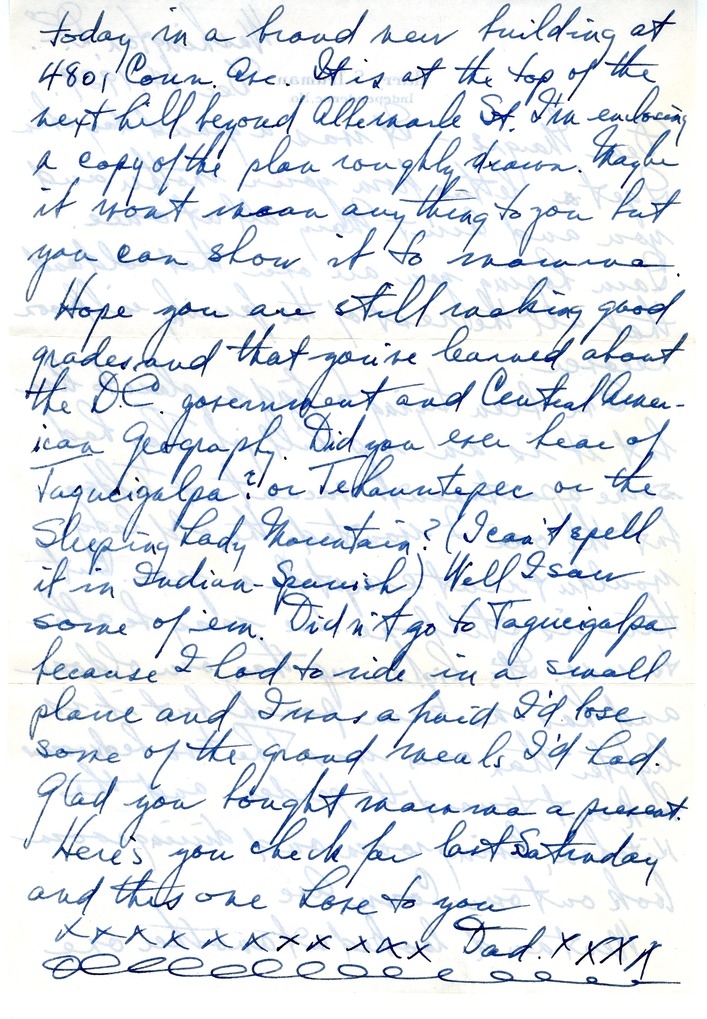 today in a brand new building at
4801 Conn. Ave. It is at the top of the
next hill beyond Albemarle St. I'm enclosing
a copy of the plan roughly drawn. Maybe
it wont mean anything to you but
you can show it to mamma.
Hope you are still making good
grades and that you've learned about
the D.C. government and Central Amer-
ican Geography. Did you ever hear of
Tagucigalpa? or Tehauntepec or the
Sleeping Lady Mountain? (I can't spell
it in Indian-Spanish) Well I saw
some of 'em. Didn't go to Tagucigalpa
because I had to ride in a small
plane and I was afraid I'd lose
some of the grand meals I'd had.
Glad you bought mamma a present.
Here's you check for last Saturday
and this one Love to you
X X X X X X X X X X X X X Dad. X X X X